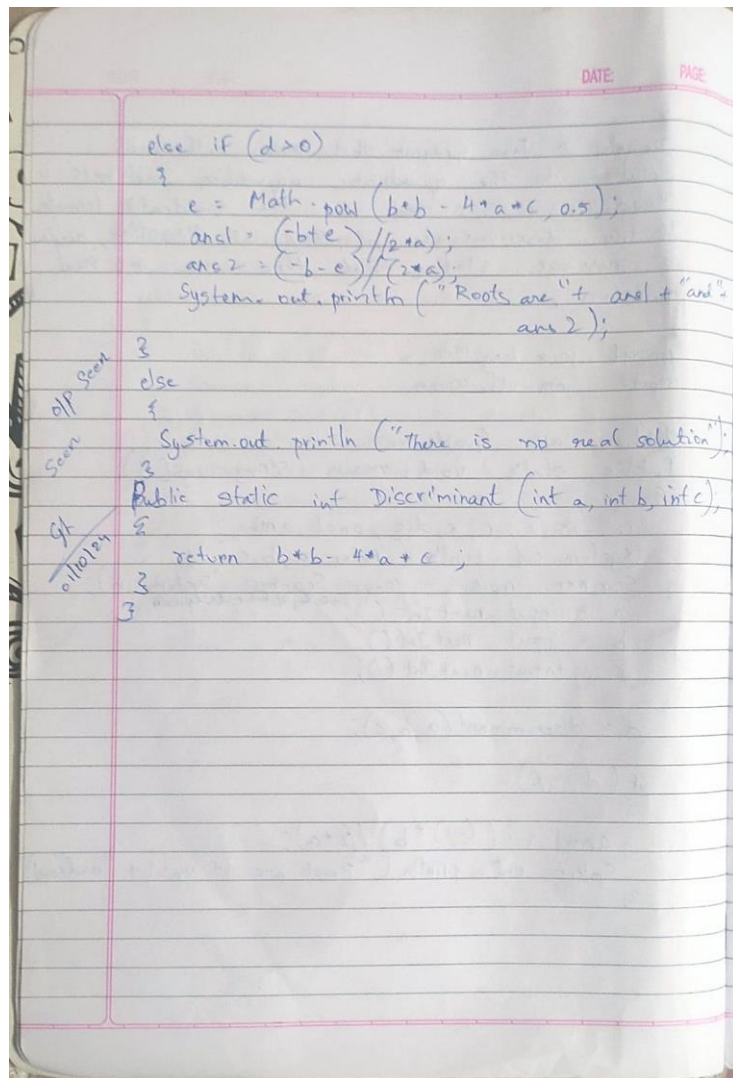 DATE: PAGE:
else if (d>0)
{
e = Math.pow (b*b - 4*a*c, 0.5);
ans1 = (-b+e)/(2*a);
ans2 = (-b-e)/(2*a);
System.out.println ("Roots are"+ ans1 + "and"+
ans2);
}
else
{
System.out.println ("There is no real solution");
}
Public static int Discriminant (int a, int b, int c);
{
return b*b - 4*a*c ;
}
}
o/p Seen
Seen
01/10/24